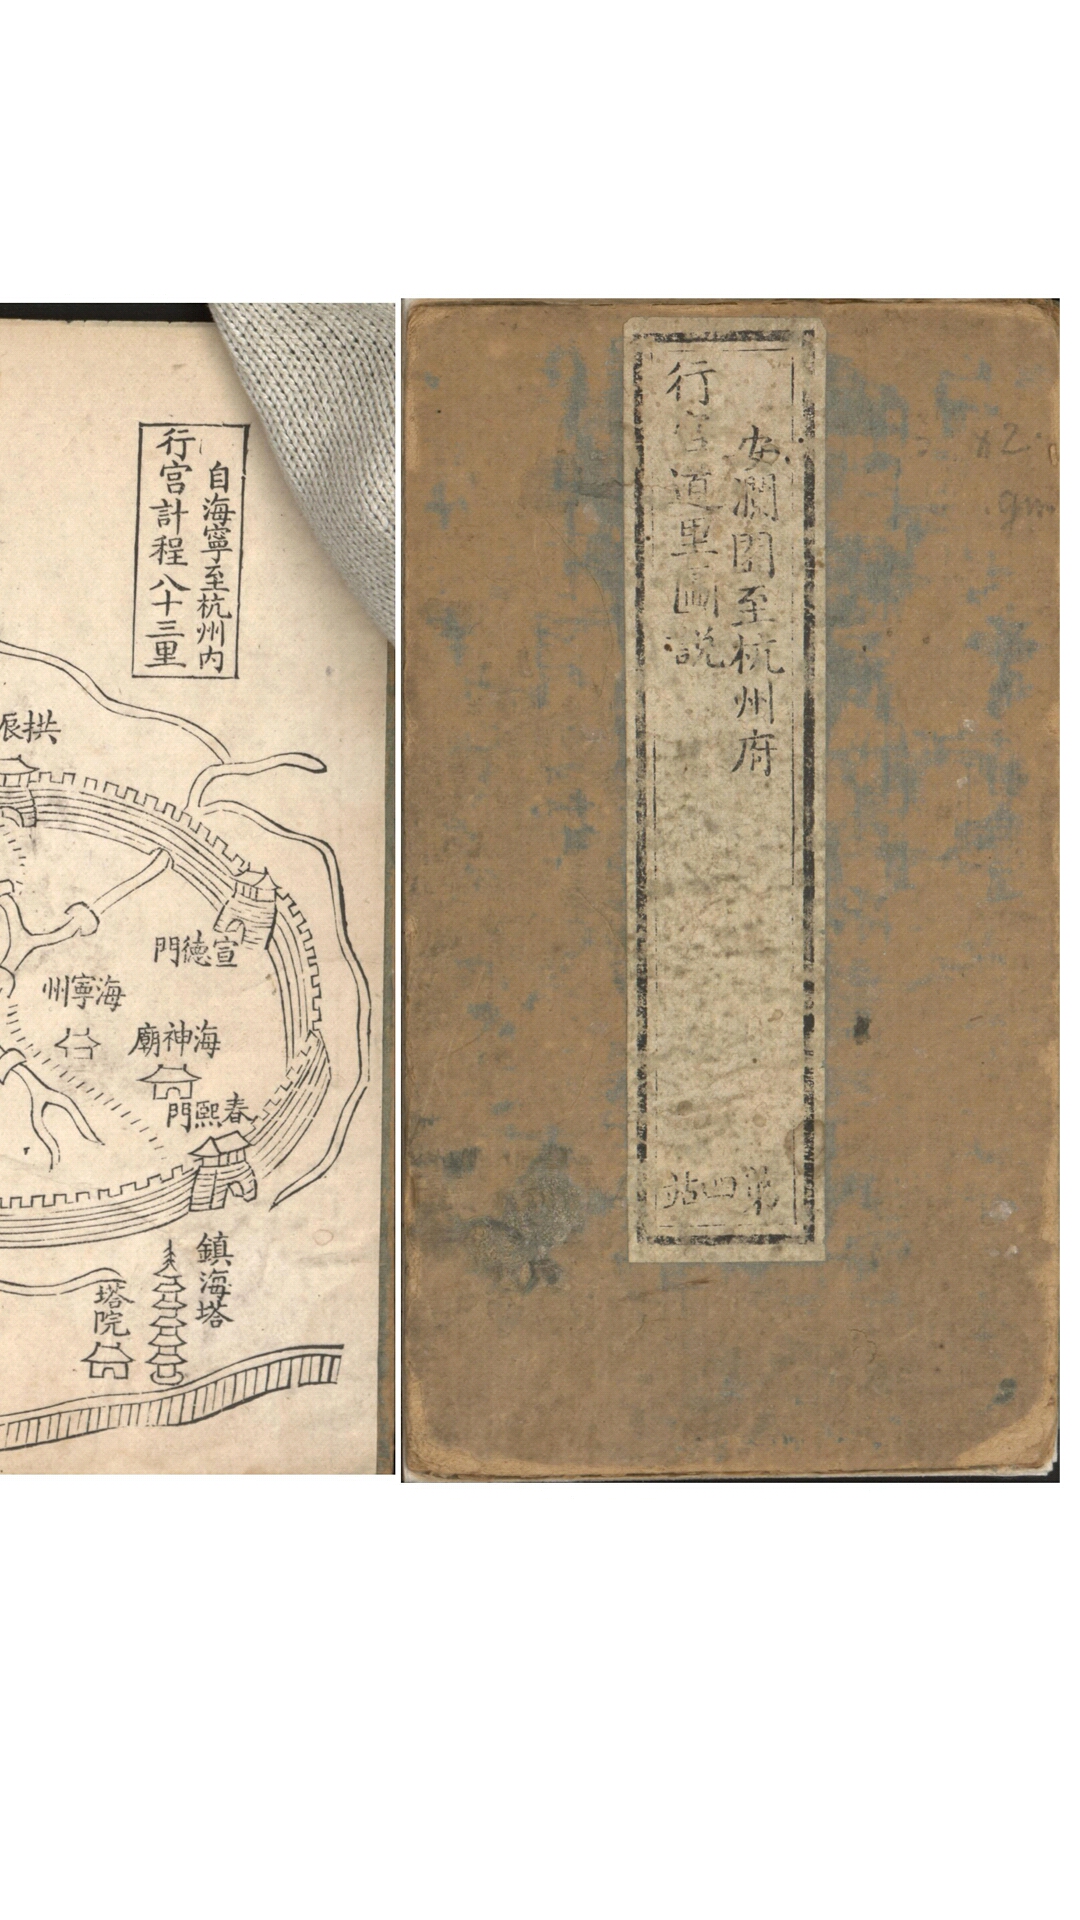 安瀾園至杭州府
行宮道里圖說
第四站
自海寧至杭州內
行宮計程八十三里
拱辰
宣德門
海寧州
海神廟
春熙門
鎮海塔
塔院